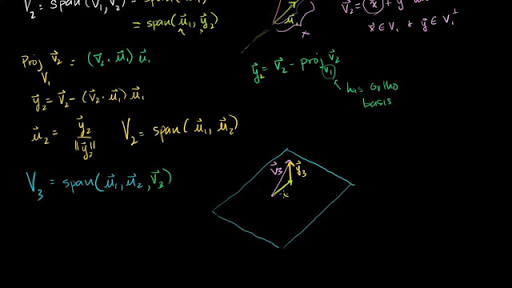 V₂ = span(v⃗₁, v⃗₂) =
= span(u⃗₁, y⃗₂)
x
u⃗
v⃗₂ = x⃗ + y⃗
x⃗ ∈ V₁ + y⃗ ∈ V₁^⊥
Proj_V₁ v⃗₂ = (v⃗₂ · u⃗₁) u⃗₁
y⃗₂ = v⃗₂ - proj_V₁ v⃗₂
has ortho
basis
y⃗₂ = v⃗₂ - (v⃗₂ · u⃗₁) u⃗₁
u⃗₂ = y⃗₂ / ||y⃗₂||
V₂ = span(u⃗₁, u⃗₂)
V₃ = span(u⃗₁, u⃗₂, v⃗₃)
v⃗₃
y⃗₃
x